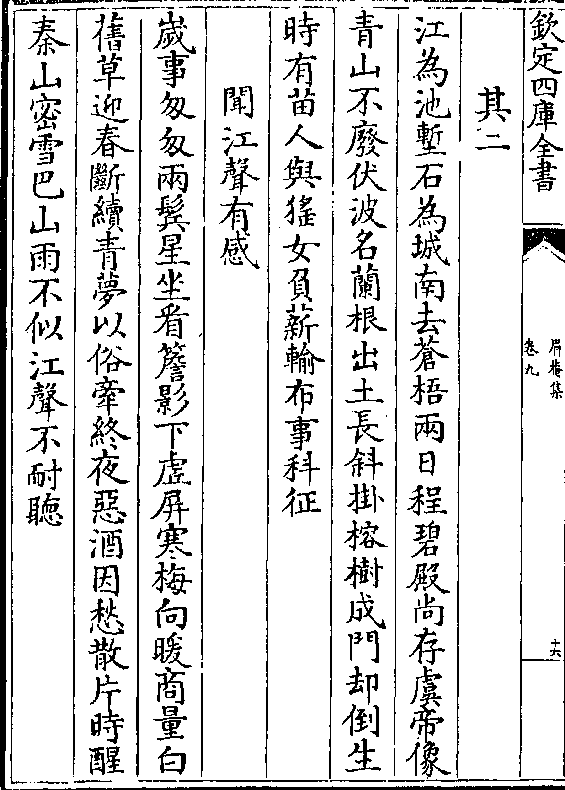 欽定四庫全書
眉菴集
卷九
十六
其二
江為池塹石為城南去蒼梧兩日程碧殿尚存虞帝像
青山不廢伏波名蘭根出土長斜掛榕樹成門却倒生
時有苗人與猺女負薪輸布事科征
聞江聲有感
嵗事匆匆兩鬂星坐看簷影下虛屏寒梅向暖商量白
舊草迎春斷續青夢以俗牽終夜惡酒因愁散片時醒
秦山密雪巴山雨不似江聲不耐聴